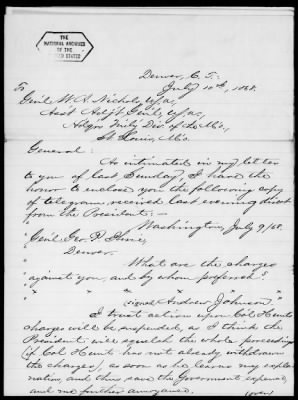 THE
NATIONAL ARCHIVES
OF THE
UNITED STATES
Denver, C. T.:
July 10th, 1868.
To
Genl. W. A. Nichols, U.S.A.,
Asst. Adjt. Genl., U.S.A.,
Hdqrs. Mily. Div. of the Mo.,
St. Louis, Mo.
General:
As intimated in my letter
to you of last Sunday, I have the
honor to enclose you the following copy
of telegram received last evening direct
from the President:—
Washington, July 9/68.
"Genl. Geo.
Denver.
"What are the charges
"against you, and by whom preferred?
(signed) Andrew Johnson."
I trust action upon Col. Hunt's
charges will be suspended, as I think the
President will squelch the whole proceedings
(if Col. Hunt has not already withdrawn
the charges), as soon as he learns my expla-
nation, and thus save the Government expense,
and me further annoyance.
(over)